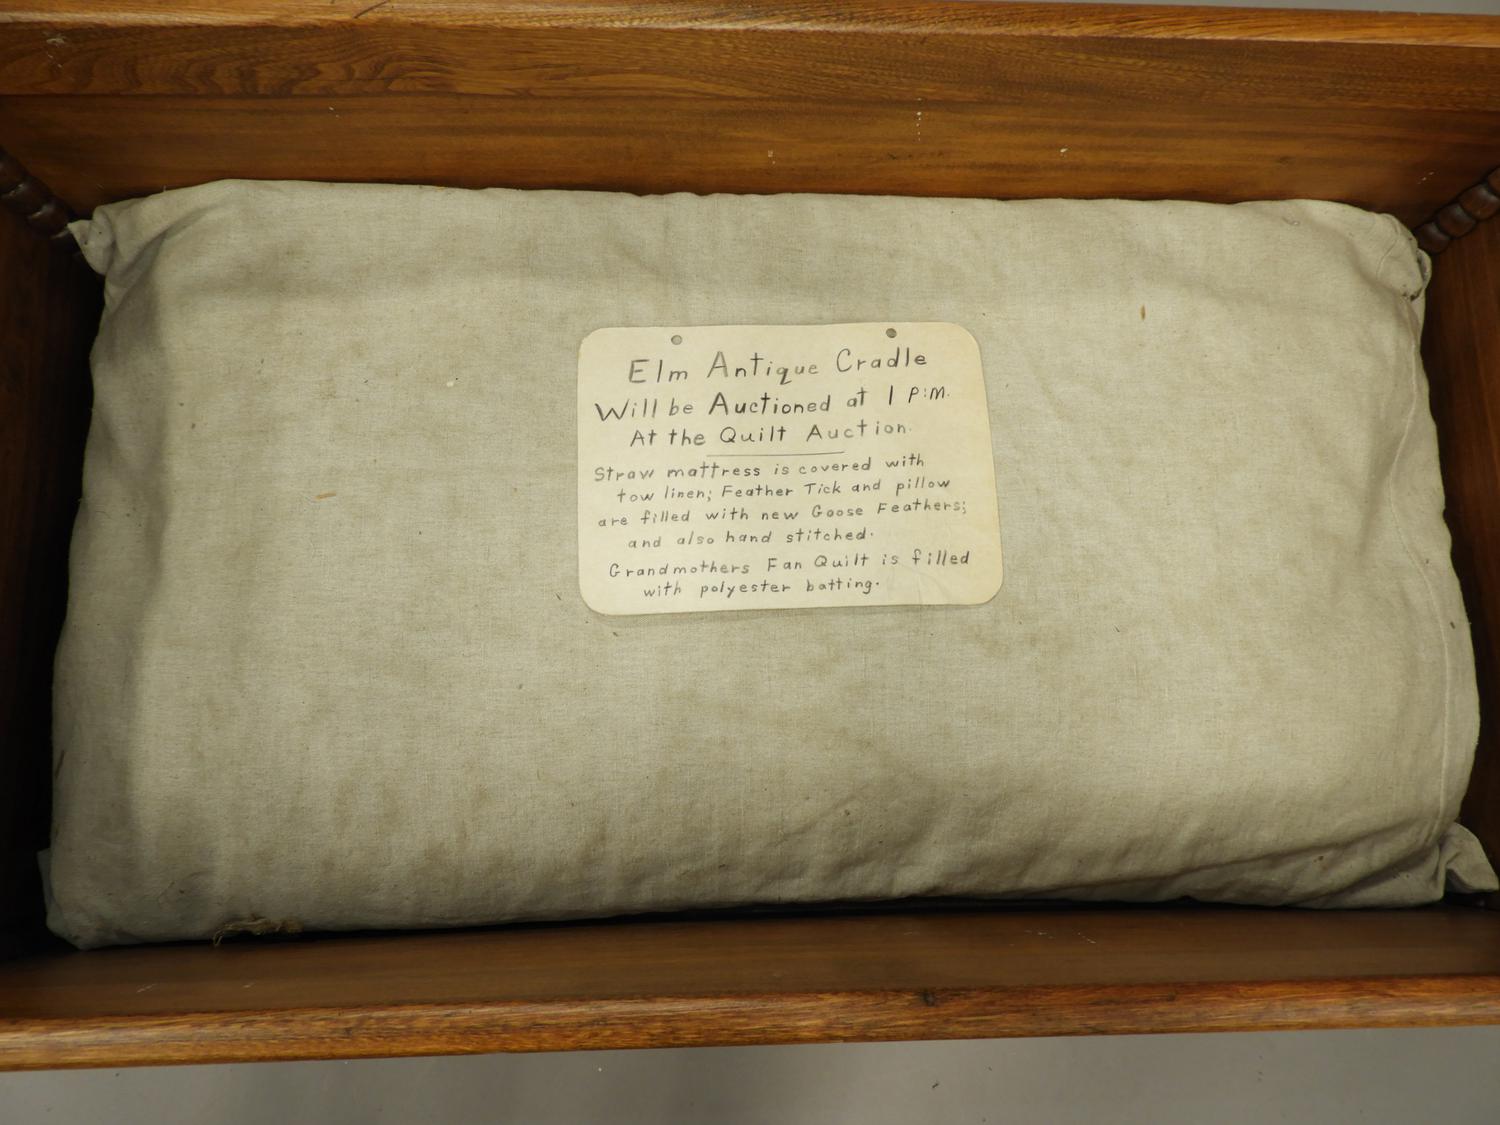 Elm Antique Cradle
Will be Auctioned at 1 P:M.
At the Quilt Auction.
Straw mattress is covered with
tow linen; Feather Tick and pillow
are filled with new Goose Feathers;
and also hand stitched.
Grandmothers Fan Quilt is filled
with polyester batting.